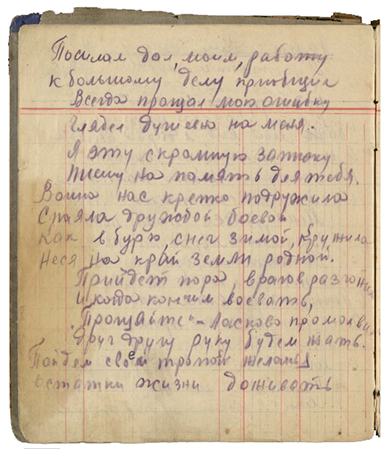 Посилал дал, моим, работу
к большому делу приобщил
Всегда прощал мою ошибку
Глядел душевно на меня.
Я эту скромную записку
Пишу на память для тебя.
Война нас крепко подружила
Спаяла дружбой боевой
Как в бурю, снег зимой, кружила
Неся на край земли родной.
Прийдет пора, врагов разгоним
И когда кончим воевать,
"Прощайте" - Ласково промолвим
Друг другу руку будем жать.
Пойдем своей тропой желанья
Остатки жизни доживать